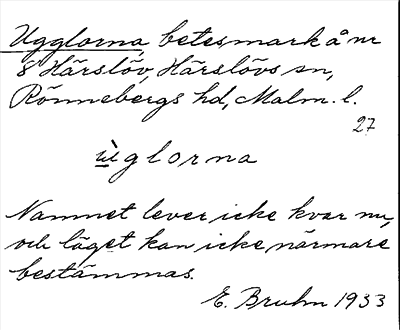 Ugglorna, betesmark å nr
8 Härslöv, Härslövs sn,
Rönnebergs hd, Malm. l.
27
ùglorna
Namnet lever icke kvar nu,
och läget kan icke närmare
bestämmas.
E. Bruhn 1933